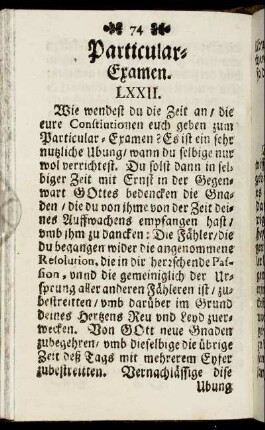 74
Particular-
Examen.
LXXII.
Wie wendest du die Zeit an / die
eure Constiutionen euch geben zum
Particular-Examen? Es ist ein sehr
nutzliche Ubung / wann du selbige nur
wol verrichtest. Du solst dann in sel-
biger Zeit mit Ernst in der Gegen-
wart GOttes bedencken die Gna-
den / die du von jhme von der Zeit dei-
nes Auffwachens empfangen hast /
vmb jhm zu dancken: Die Fähler / die
du begangen wider die angenommene
Resolution, die in dir herzschende Pas-
sion, vnnd die gemeiniglich der Ur-
sprung aller anderen Fähleren ist / zu-
bestreitten / vmb darüber im Grund
deines Hertzens Reu vnd Leyd zuer-
wecken. Von GOtt neue Gnaden
zubegehren / vmb dieselbige die übrige
Zeit deß Tags mit mehrerem Eyfer
zubestreitten. Vernachlässige dise
Ubung